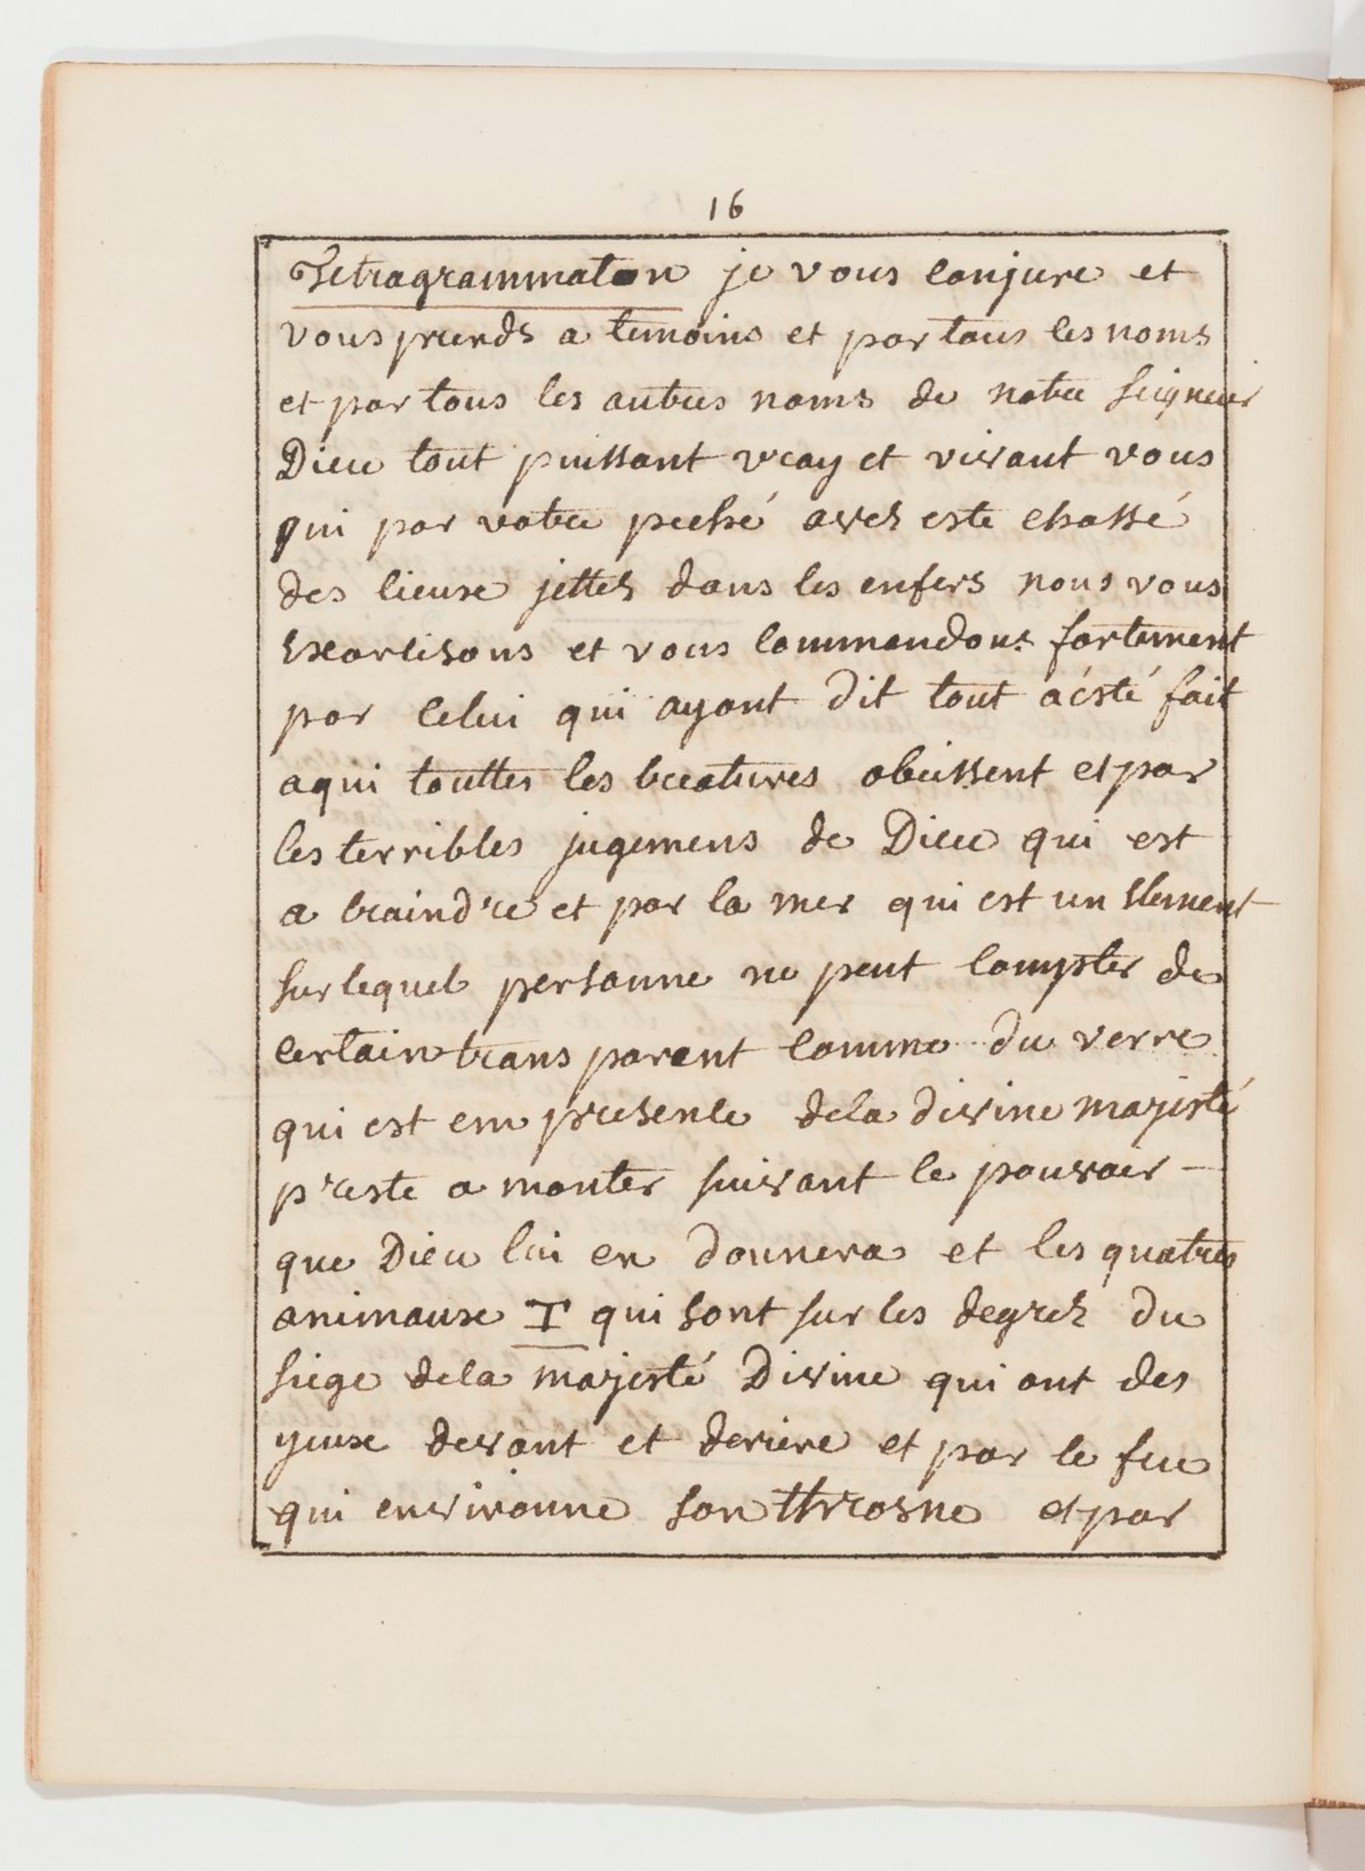 16
Tetragrammaton je vous conjure et
vous prends a temoins et par tous les noms
et par tous les autres noms de notre Seigneur
Dieu tout puissant vray et vivant vous
qui par votre peché avez este chassé
des lieux jettez dans les enfers nous vous
exorcisons et vous commandons fortement
par celui qui ayant dit tout a esté fait
a qui touttes les creatures obeissent et par
les terribles jugemens de Dieu qui est
a craindre et par la mer qui est un element
sur lequel personne ne peut compter de
certain transparent comme du verre
qui est en presence de la divine majesté
preste a monter suivant le pouvoir —
que Dieu lui en donnera et les quatres
animaux T qui sont sur les degrez du
siege de la majesté Divine qui ont des
yeux devant et deriere et par le feu
qui environne son throsne et par